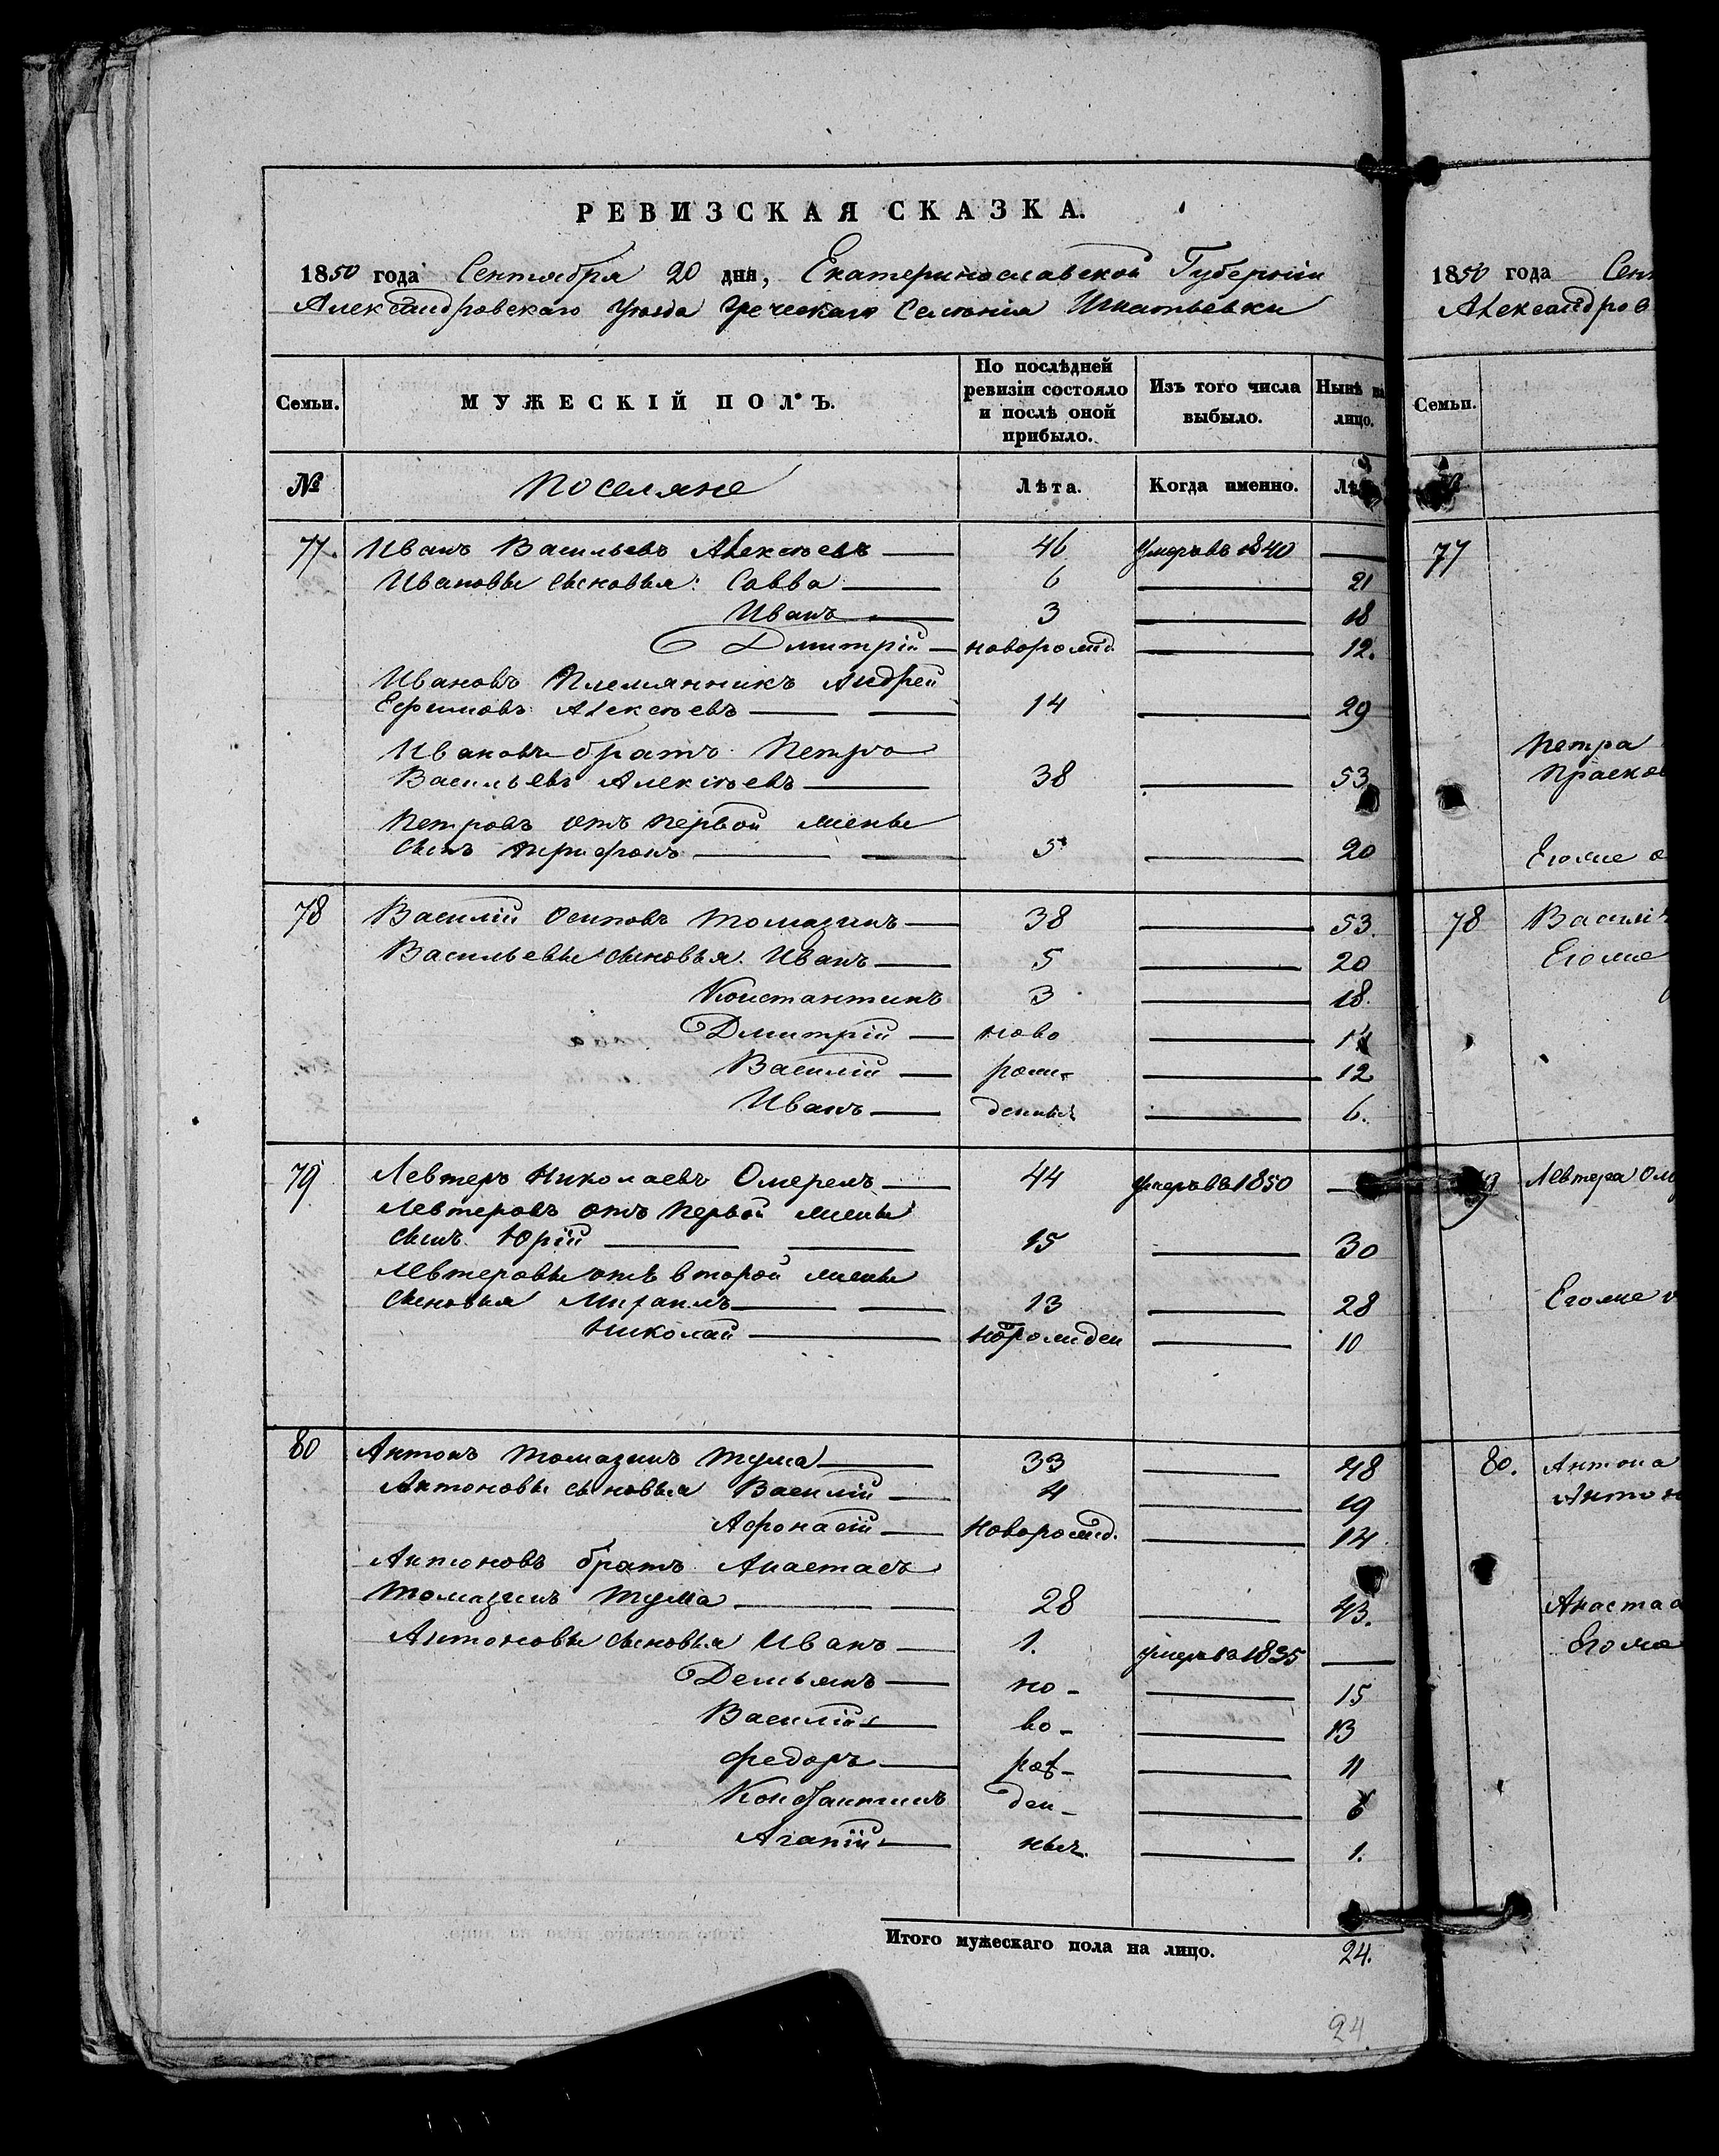 РЕВИЗСКАЯ СКАЗКА.
1850 года Сентября 20 дня, Екатеринославской Губерніи
Александровскаго уѣзда греческаго Селенія Игнатьевки
Семьи.
МУЖЕСКІЙ ПОЛЪ.
По послѣдней ревизіи состояло и послѣ оной прибыло.
Изъ того числа выбыло.
Нынѣ на лицо.
№ Поселяне Лѣта. Когда именно. Лѣ
77. Иванъ Васильевъ Алексѣевъ 46 умеръ въ 1840
Ивановы сыновья: Савва 6 21
Иванъ 3 18
Дмитрій новорожд. 12.
Ивановъ племянникъ Андрей
Ефимовъ Алексѣевъ 14 29
Ивановъ братъ Петръ
Васильевъ Алексѣевъ 38 53
Петровъ отъ первой жены
сынъ Трифонъ 5 20
78 Василій Осиповъ Томазинъ 38 53.
Васильевы сыновья. Иванъ 5 20
Константинъ 3 18.
Дмитрій ново 14
Василій рож- 12
Иванъ денные 6.
79 Левтеръ Николаевъ Омерелъ 44 умеръ въ 1850
Левтеровъ отъ первой жены
сынъ Юрій 15 30
Левтеровы отъ второй жены
сыновья Михаилъ 13 28
Николай норожден 10
80 Антонъ Томазинъ Тума 33 48
Антоновы сыновья Василій 4 19
Афонасій новорожд. 14
Антоновъ братъ Анастасъ
Томазинъ Тума 28 43.
Антоновы сыновья Иванъ 1. умеръ въ 1835
Демьянъ но- 15
Василій во- 13
Федоръ рож- 11
Константинъ ден- 6
Агапій ные. 1.
Итого мужескаго пола на лицо. 24.
24
1850 года Сен
Александров
Семьи.
77
Петра
Прасков
Егоже о
78 Василі
Егоже
79 Левтера Ом
Егоже
80. Антона
Антон
Анастас
Егоже